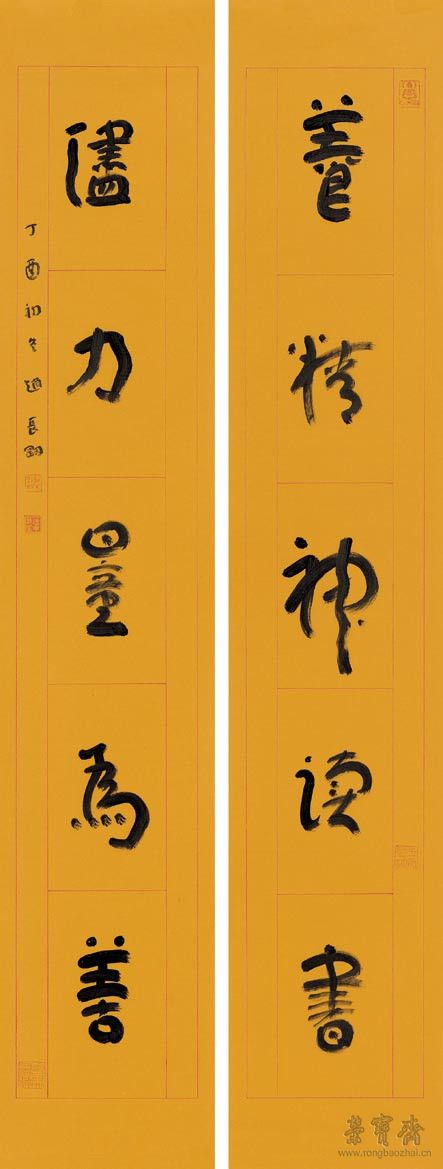 養精神读書
儘力量為善
丁酉初冬趙長剛
榮寶齋
www.rongbaozhai.cn